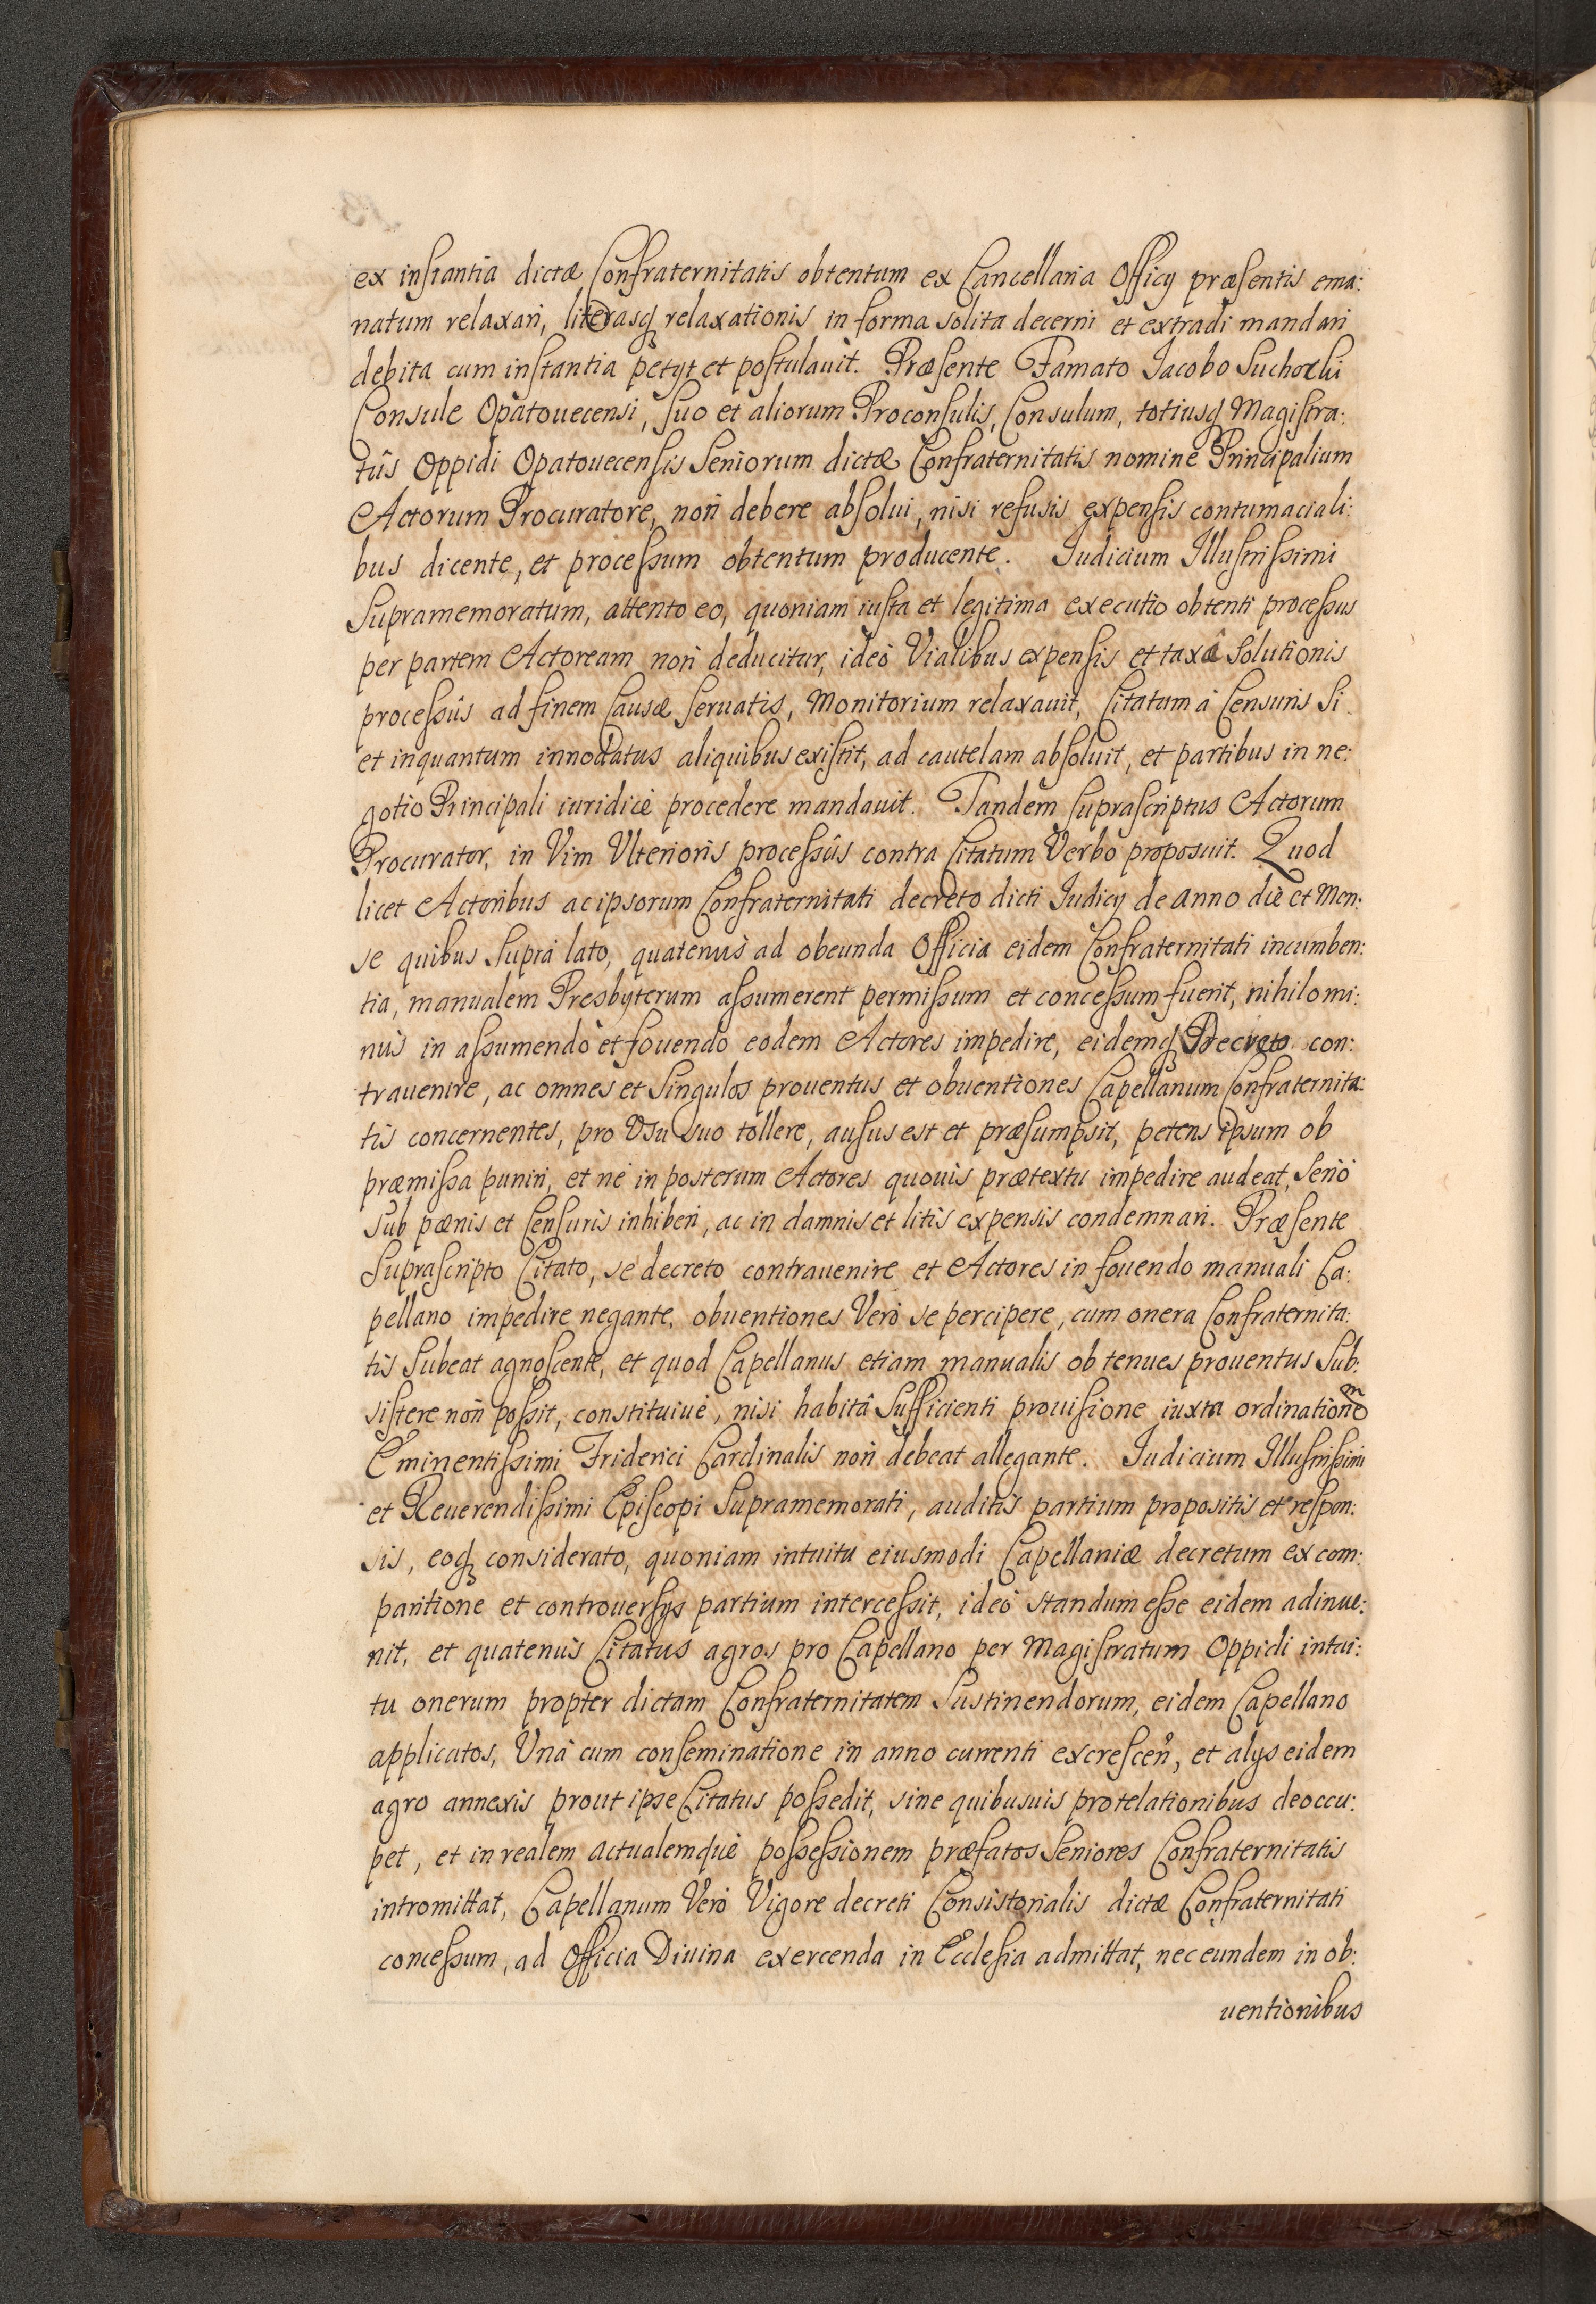 ex instantia dictæ Confraternitatis obtentum ex Cancellaria Officij præsentis ema:
natum relaxari, literasq́ relaxationis in forma solita decerni et extradi mandari
debita cum instantia petijt et postulauit. Præsente Famato Jacobo
Consule Opatouecensi, suo et aliorum Proconsulis, Consulum, totiusq́ Magistra:
tûs Oppidi Opatouecensis Seniorum dictæ Confraternitatis nomine Principalium
Actorum Procuratore, non debere absolui, nisi refusis expensis contumaciali:
bus dicente, et processum obtentum producente. Judicium Illustrissimi
Supramemoratum, attento eo, quoniam iusta et legitima executio obtenti processus
per partem Actoream non deducitur, ideò Vialibus expensis et taxâ solutionis
processûs ad finem Causæ seruatis, Monitorium relaxauit, Citatum à Censuris si
et inquantum innodatus aliquibus existit, ad cautelam absoluit, et partibus in ne:
gotio Principali iuridicè procedere mandauit. Tandem suprascriptus Actorum
Procurator, in Vim Vlterioris processûs contra Citatum Verbo proposuit. Quod
licet Actoribus ac ipsorum Confraternitati decreto dicti Judicij de anno die et Men:
se quibus suprà lato, quatenus ad obeunda Officia eidem Confraternitati incumben:
tia, manualem Presbyterum assumerent permissum et concessum fuerit, nihilomi:
nùs in assumendo et fouendo eodem Actores impedire, eidemq́ Decreto con:
trauenire, ac omnes et singulos prouentus et obuentiones Capellanum Confraternita:
tis concernentes, pro Vsu suo tollere, ausus est et præsumpsit, petens ipsum ob
præmissa puniri, et nè in posterum Actores quouis prætextu impedire audeat, seriò
sub pænis et Censuris inhiberi, ac in damnis et litis expensis condemnari. Præsente
Suprascripto Citato, se decreto contrauenire et Actores in fouendo manuali Ca:
pellano impedire negante, obuentiones Verò se percipere, cum onera Confraternita:
tis subeat agnoscente, et quod Capellanus etiam manualis ob tenues prouentus sub:
sistere non possit, constituiuè, nisi habitâ sufficienti prouisione iuxta ordinationem
Eminentissimi Friderici Cardinalis non debeat allegante. Judicium Illustrissimi
et Reuerendissimi Episcopi Supramemorati, auditis partium propositis et respon:
sis, eoq́ considerato, quoniam intuitu eiusmodi Capellaniæ decretum ex com:
paritione et controuersijs partium intercessit, ideò standum esse eidem adinue:
nit, et quatenùs Citatus agros pro Capellano per Magistratum Oppidi intui:
tu onerum propter dictam Confraternitatem sustinendorum, eidem Capellano
applicatos, Vnà cum conseminatione in anno currenti excrescen, et alijs eidem
agro annexis prout ipse Citatus possedit, sine quibusuis protelationibus deoccu:
pet, et in realem actualemquè possessionem præfatos Seniores Confraternitatis
intromittat, Capellanum Verò Vigore decreti Consistorialis dictæ Confraternitati
concessum, ad Officia Diuina exercenda in Ecclesia admittat, nec eundem in ob:
uentionibus